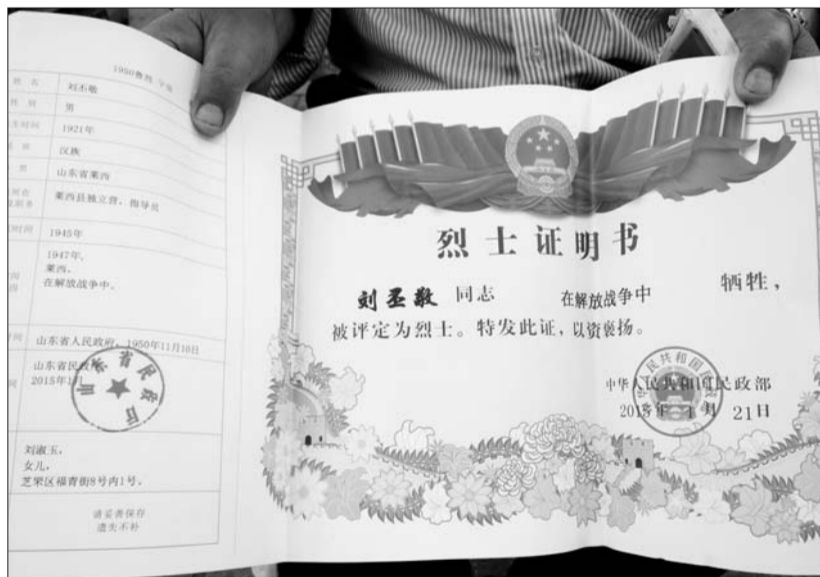 姓 名
刘丕敬
性 别
男
1921年
汉族
山东省莱西
莱西县独立营，指导员
1945年
1947年，
莱西，
在解放战争中。
山东省人民政府，1950年11月10日
山东省民政厅
2015年1月
山东省民政厅
刘淑玉，
女儿，
芝罘区福青街8号内1号。
请妥善保存
遗失不补
烈士证明书
刘丕敬 同志 在解放战争中 牺牲，
被评定为烈士。特发此证，以资褒扬。
中华人民共和国民政部
2015年 1月 21日